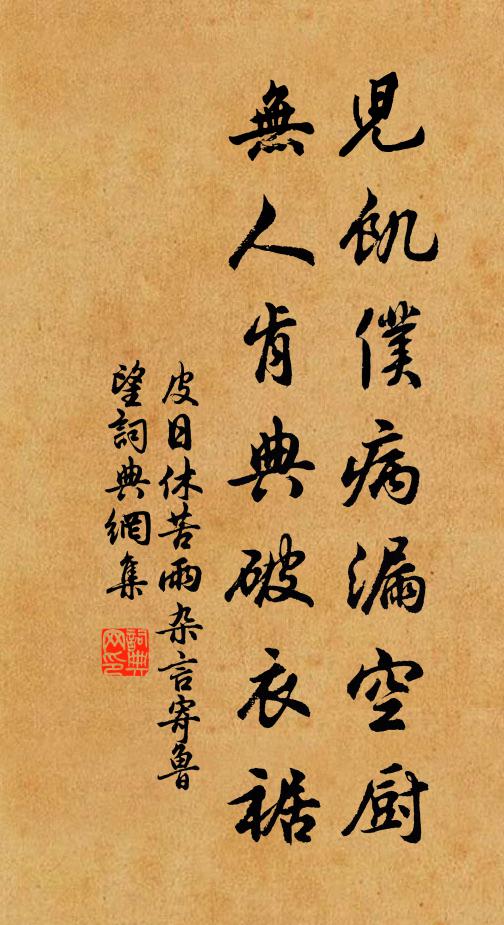 兒飢僕病漏空厨
無人肯典破衣裾
皮日休苦雨杂言寄魯
望詞典網集
詞典网印